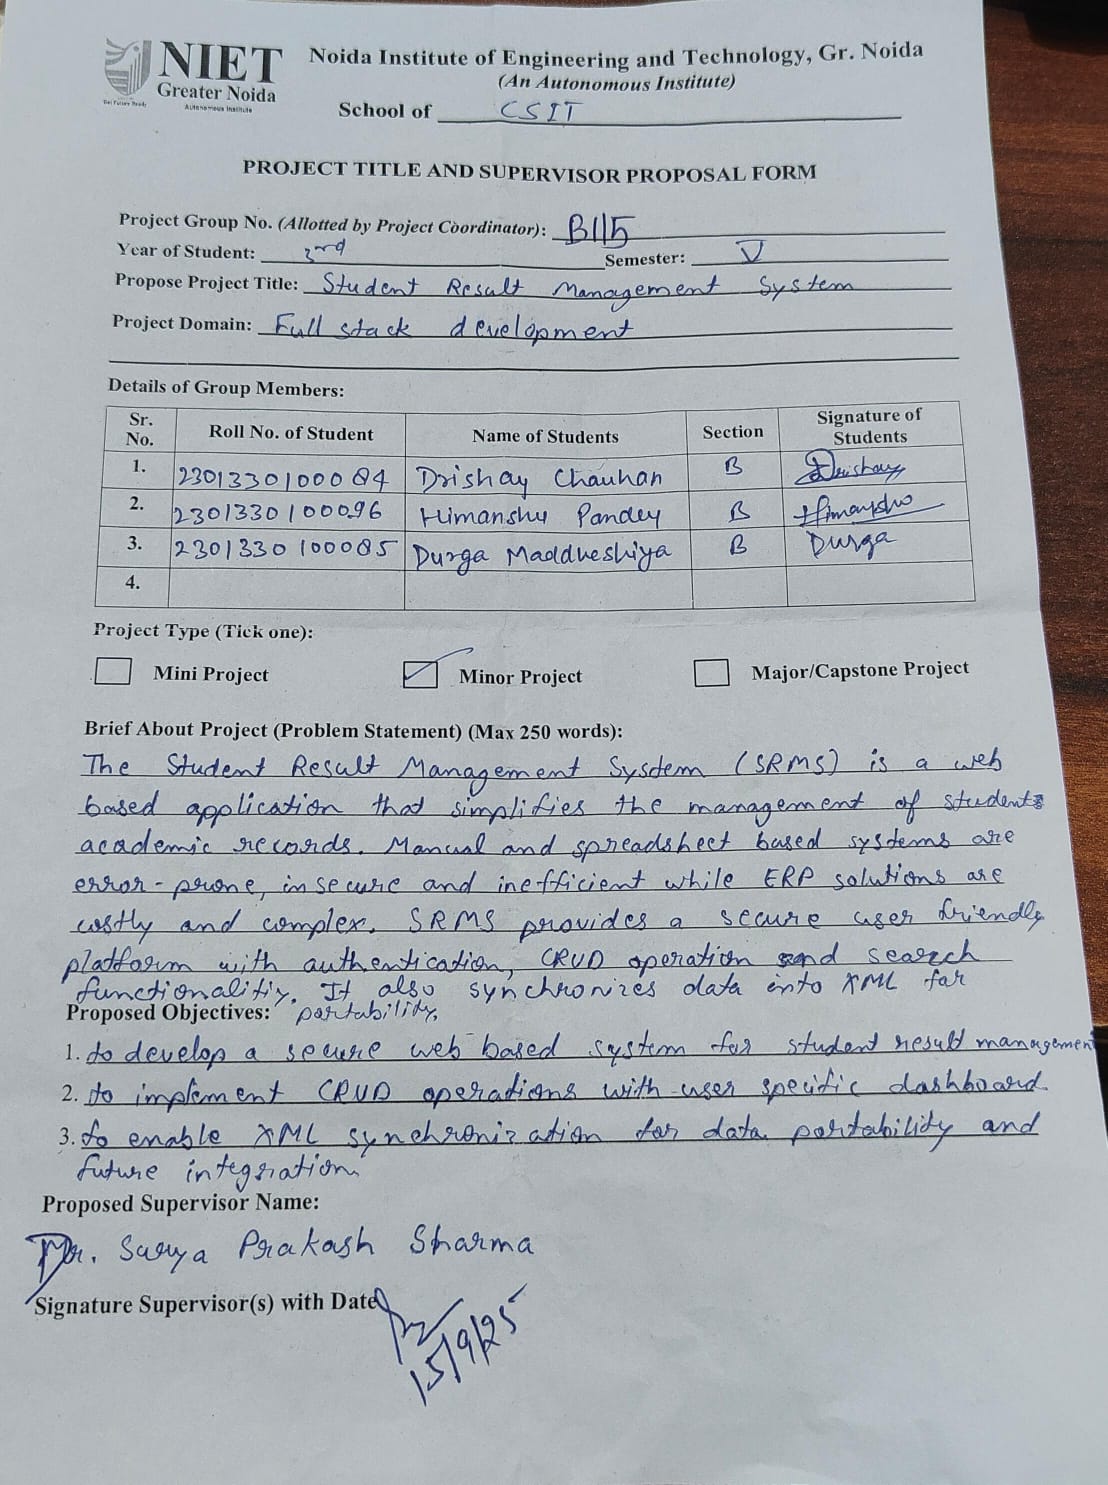 NIET
Greater Noida
Autonomous Institute
Get Future Ready
Noida Institute of Engineering and Technology, Gr. Noida
(An Autonomous Institute)
School of CSIT
PROJECT TITLE AND SUPERVISOR PROPOSAL FORM
Project Group No. (Allotted by Project Coordinator): B115
Year of Student: 3rd Semester: V
Propose Project Title: Student Result Management System
Project Domain: Full stack development
Details of Group Members:
Sr. No. Roll No. of Student Name of Students Section Signature of Students
1. 2301330100084 Drishay Chauhan B Drishay
2. 2301330100096 Himanshu Pandey B Himanshu
3. 2301330100085 Durga Maddheshiya B Durga
4.
Project Type (Tick one):
Mini Project Minor Project Major/Capstone Project
Brief About Project (Problem Statement) (Max 250 words):
The Student Result Management System (SRMS) is a web
based application that simplifies the management of students
academic records. Manual and spreadsheet based systems are
error-prone, insecure and inefficient while ERP solutions are
costly and complex. SRMS provides a secure user friendly
platform with authentication, CRUD operation and search
functionalitiy. It also synchronizes data into XML for
Proposed Objectives: portability.
1. to develop a secure web based system for student result management
2. to implement CRUD operations with user specific dashboard.
3. to enable XML synchronization for data portability and
future integration.
Proposed Supervisor Name:
Dr. Surya Prakash Sharma
Signature Supervisor(s) with Date
15/9/25